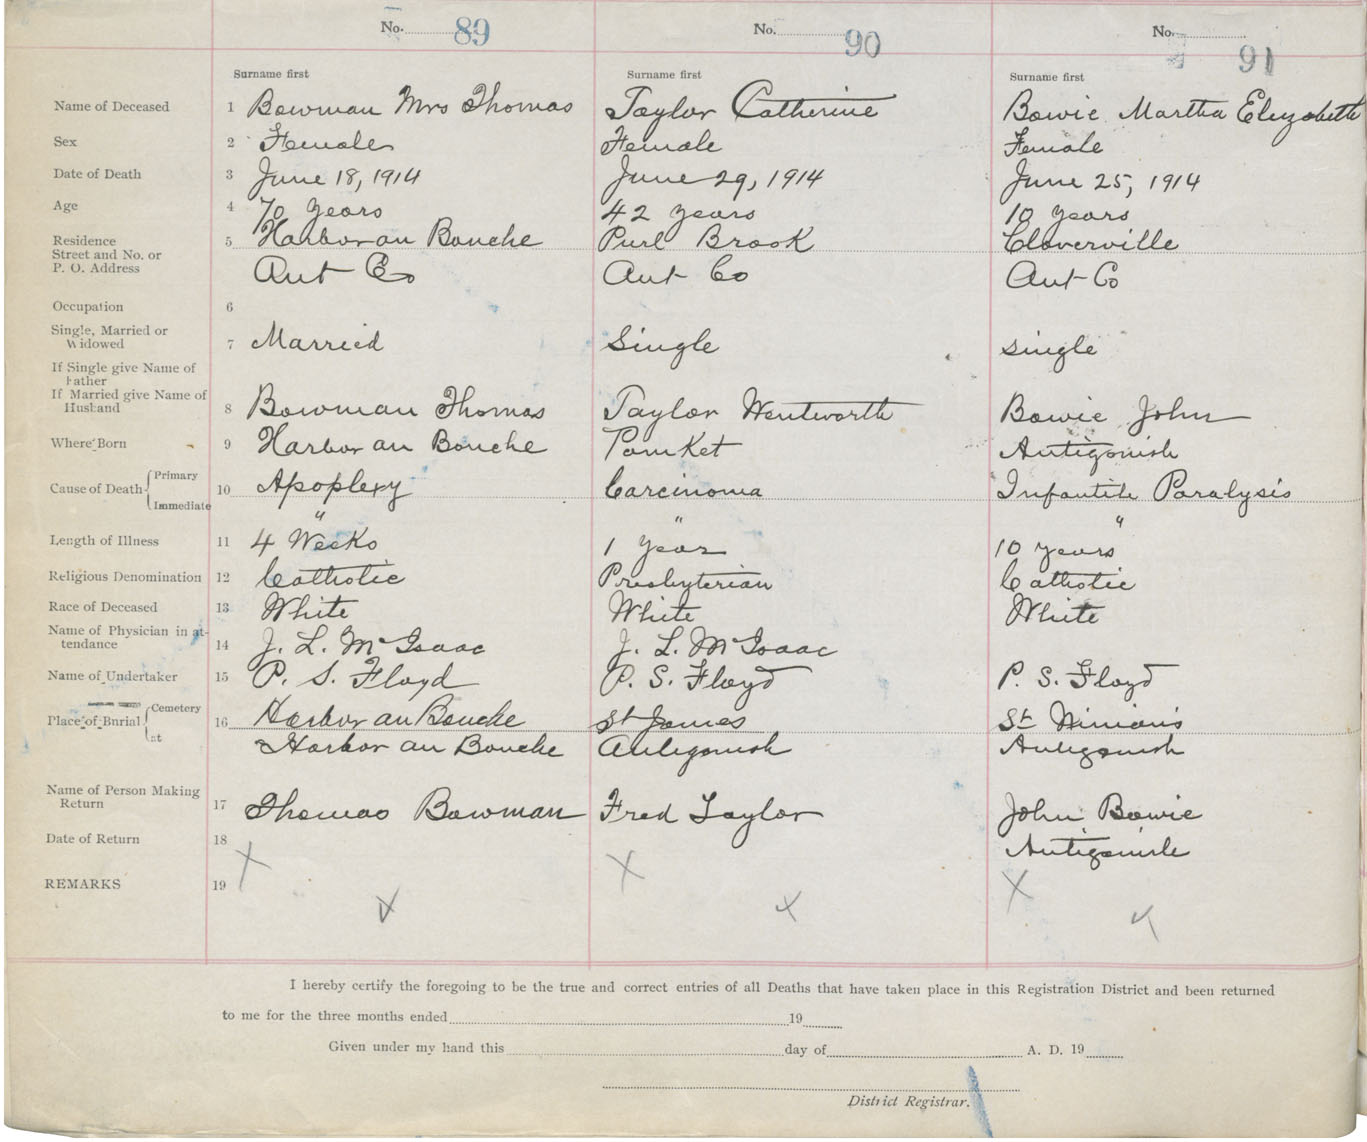 No. 89 No. 90 No. 91
Surname first Surname first Surname first
Name of Deceased 1 Bowman Mrs Thomas Taylor Catherine Bowie Martha Elizabeth
Sex 2 Female Female Female
Date of Death 3 June 18, 1914 June 29, 1914 June 25, 1914
Age 4 70 years 42 years 10 years
Residence 5 Harbor au Bouche Purl Brook Cloverville
Street and No. or
P. O. Address Ant Co Ant Co Ant Co
Occupation 6
Single, Married or
Widowed 7 Married Single single
If Single give Name of
Father
If Married give Name of
Husband 8 Bowman Thomas Taylor Wentworth Bowie John
Where Born 9 Harbor au Bouche Pomket Antigonish
Cause of Death Primary 10 Apoplexy Carcinoma Infantile Paralysis
Immediate " " "
Length of Illness 11 4 Weeks 1 year 10 years
Religious Denomination 12 Catholic Presbyterian Catholic
Race of Deceased 13 White White White
Name of Physician in at-
tendance 14 J. L. McIsaac J. L. McIsaac
Name of Undertaker 15 P. S. Floyd P. S. Floyd P. S. Floyd
Place of Burial Cemetery 16 Harbor au Bouche St James St Ninian's
at Harbor au Bouche Antigonish Antigonish
Name of Person Making
Return 17 Thomas Bowman Fred Taylor John Bowie
Date of Return 18 Antigonish
REMARKS 19
I hereby certify the foregoing to be the true and correct entries of all Deaths that have taken place in this Registration District and been returned
to me for the three months ended 19
Given under my hand this day of A. D. 19
District Registrar.